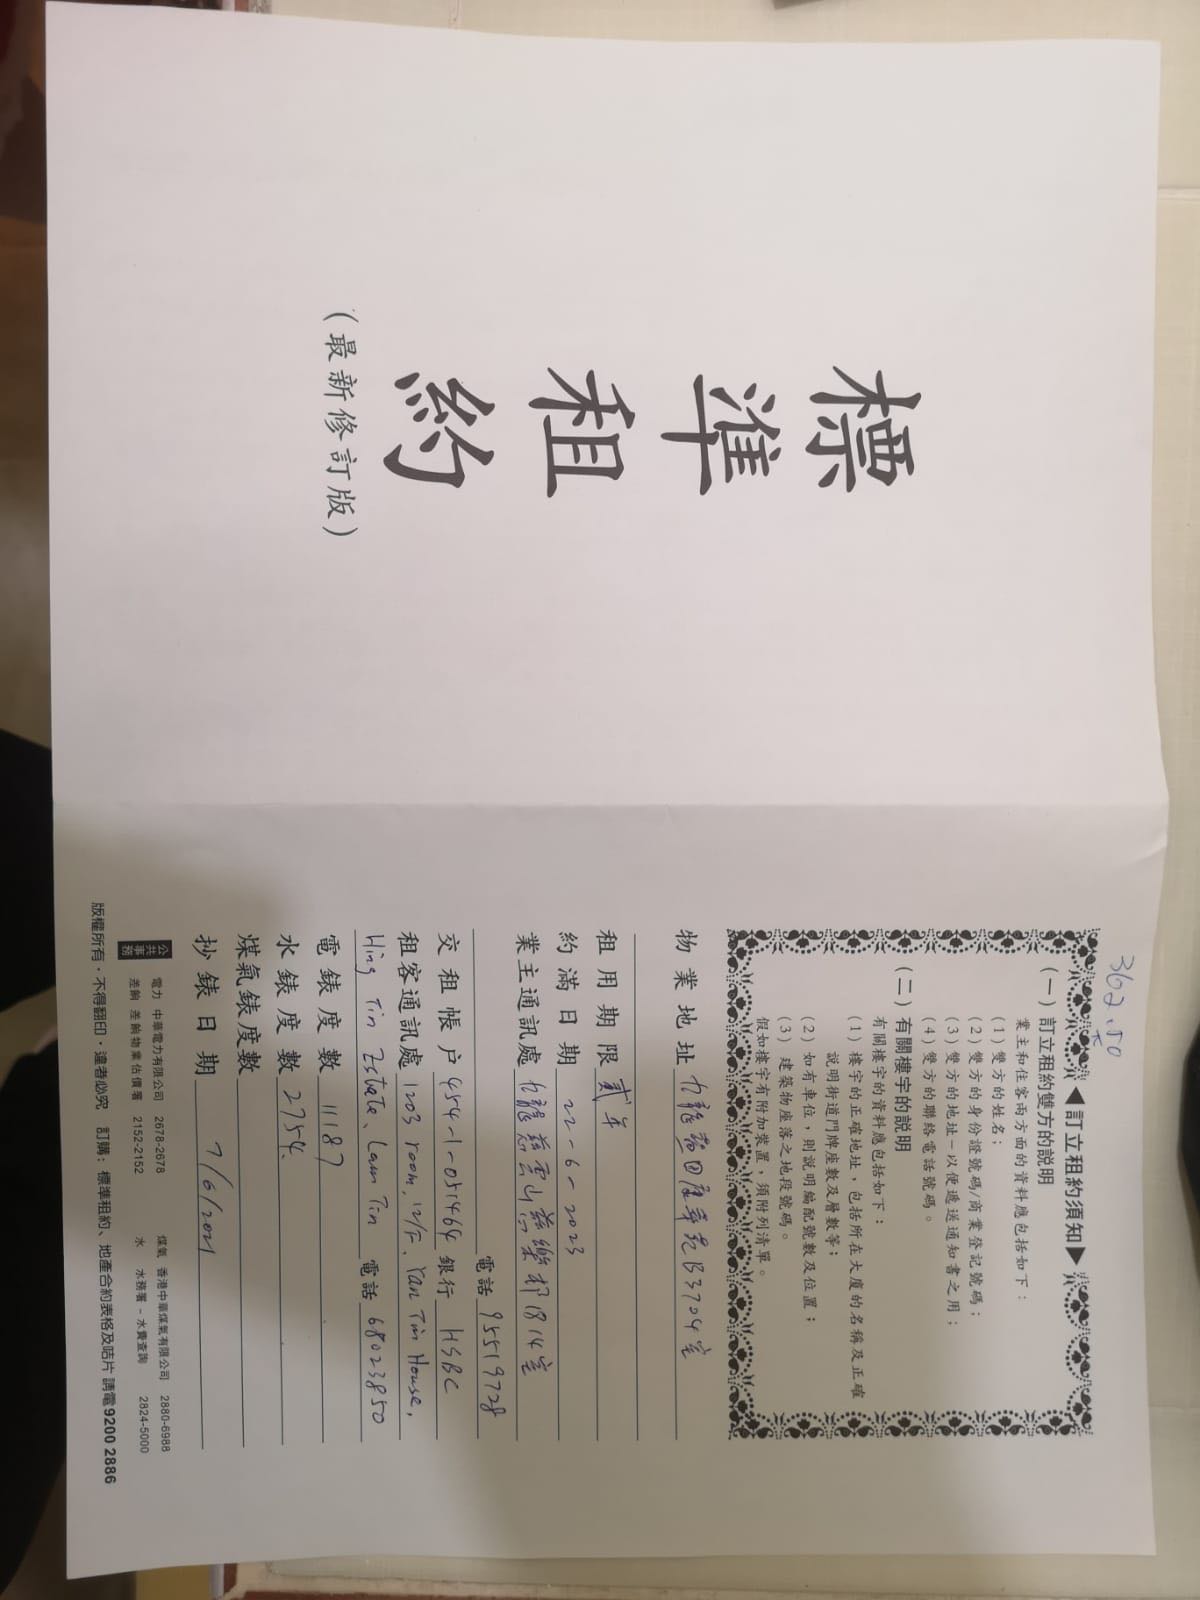 標準租約
(最新修訂版)
362.50
◀訂立租約須知▶
(一) 訂立租約雙方的説明
業主和住客兩方面的資料應包括如下：
(1) 雙方的姓名；
(2) 雙方的身份證號碼/商業登記號碼；
(3) 雙方的地址－以便遞送通知書之用；
(4) 雙方的聯絡電話號碼。
(二) 有關樓宇的説明
有關樓宇的資料應包括如下：
(1) 樓宇的正確地址，包括所在大廈的名稱及正確
說明街道門牌座數及層數等；
(2) 如有車位，則説明編配號數及位置；
(3) 建築物座落之地段號碼。
假如樓宇有附加裝置，須附列清單。
物業地址 九龍藍田康華苑B3704室
租用期限 貳年
約滿日期 22-6-2023
業主通訊處 九龍慈雲山慈樂邨1814室
電話 95519728
交租帳户 454-1-051464 銀行 HSBC
租客通訊處 1203 room, 12/F, Yan Tin House,
Hing Tin Estate, Lam Tin 電話 68023850
電錶度數 11187
水錶度數 2754.
煤氣錶度數
抄錶日期 7/6/2021
公共事務
電力 中華電力有限公司 2678-2678 煤氣 香港中華煤氣有限公司 2880-6988
差餉 差餉物業估價署 2152-2152 水 水務署－水費查詢 2824-5000
版權所有・不得翻印・違者必究 訂購：標準租約、地產合約表格及咭片 請電9200 2886